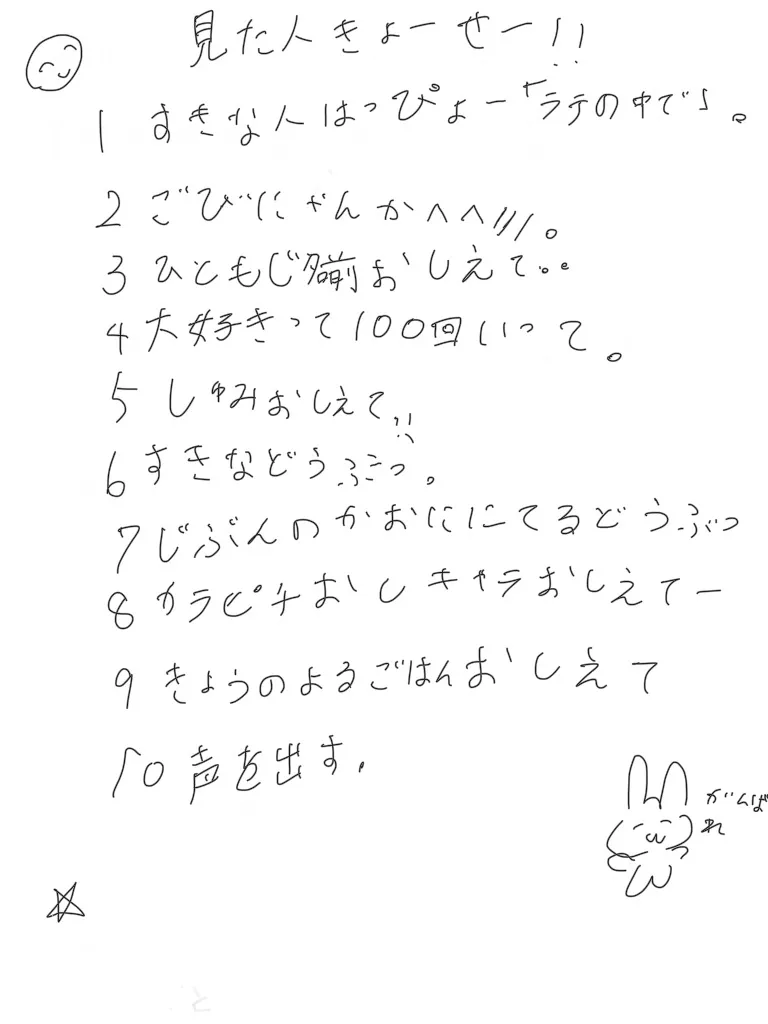 見た人きょーせー!!
1 すきな人はっぴょー「ラテの中で」。
2 ごびにゃんかへへ///。
3 ひともじ名前おしえて。。
4 大好きって100回いって。
5 しゅみおしえて!!
6 すきなどうぶつ。
7 じぶんのかおににてるどうぶつ
8 カラピチおしキャラおしえてー
9 きょうのよるごはんおしえて
10 声を出す.
がんば
れ
と